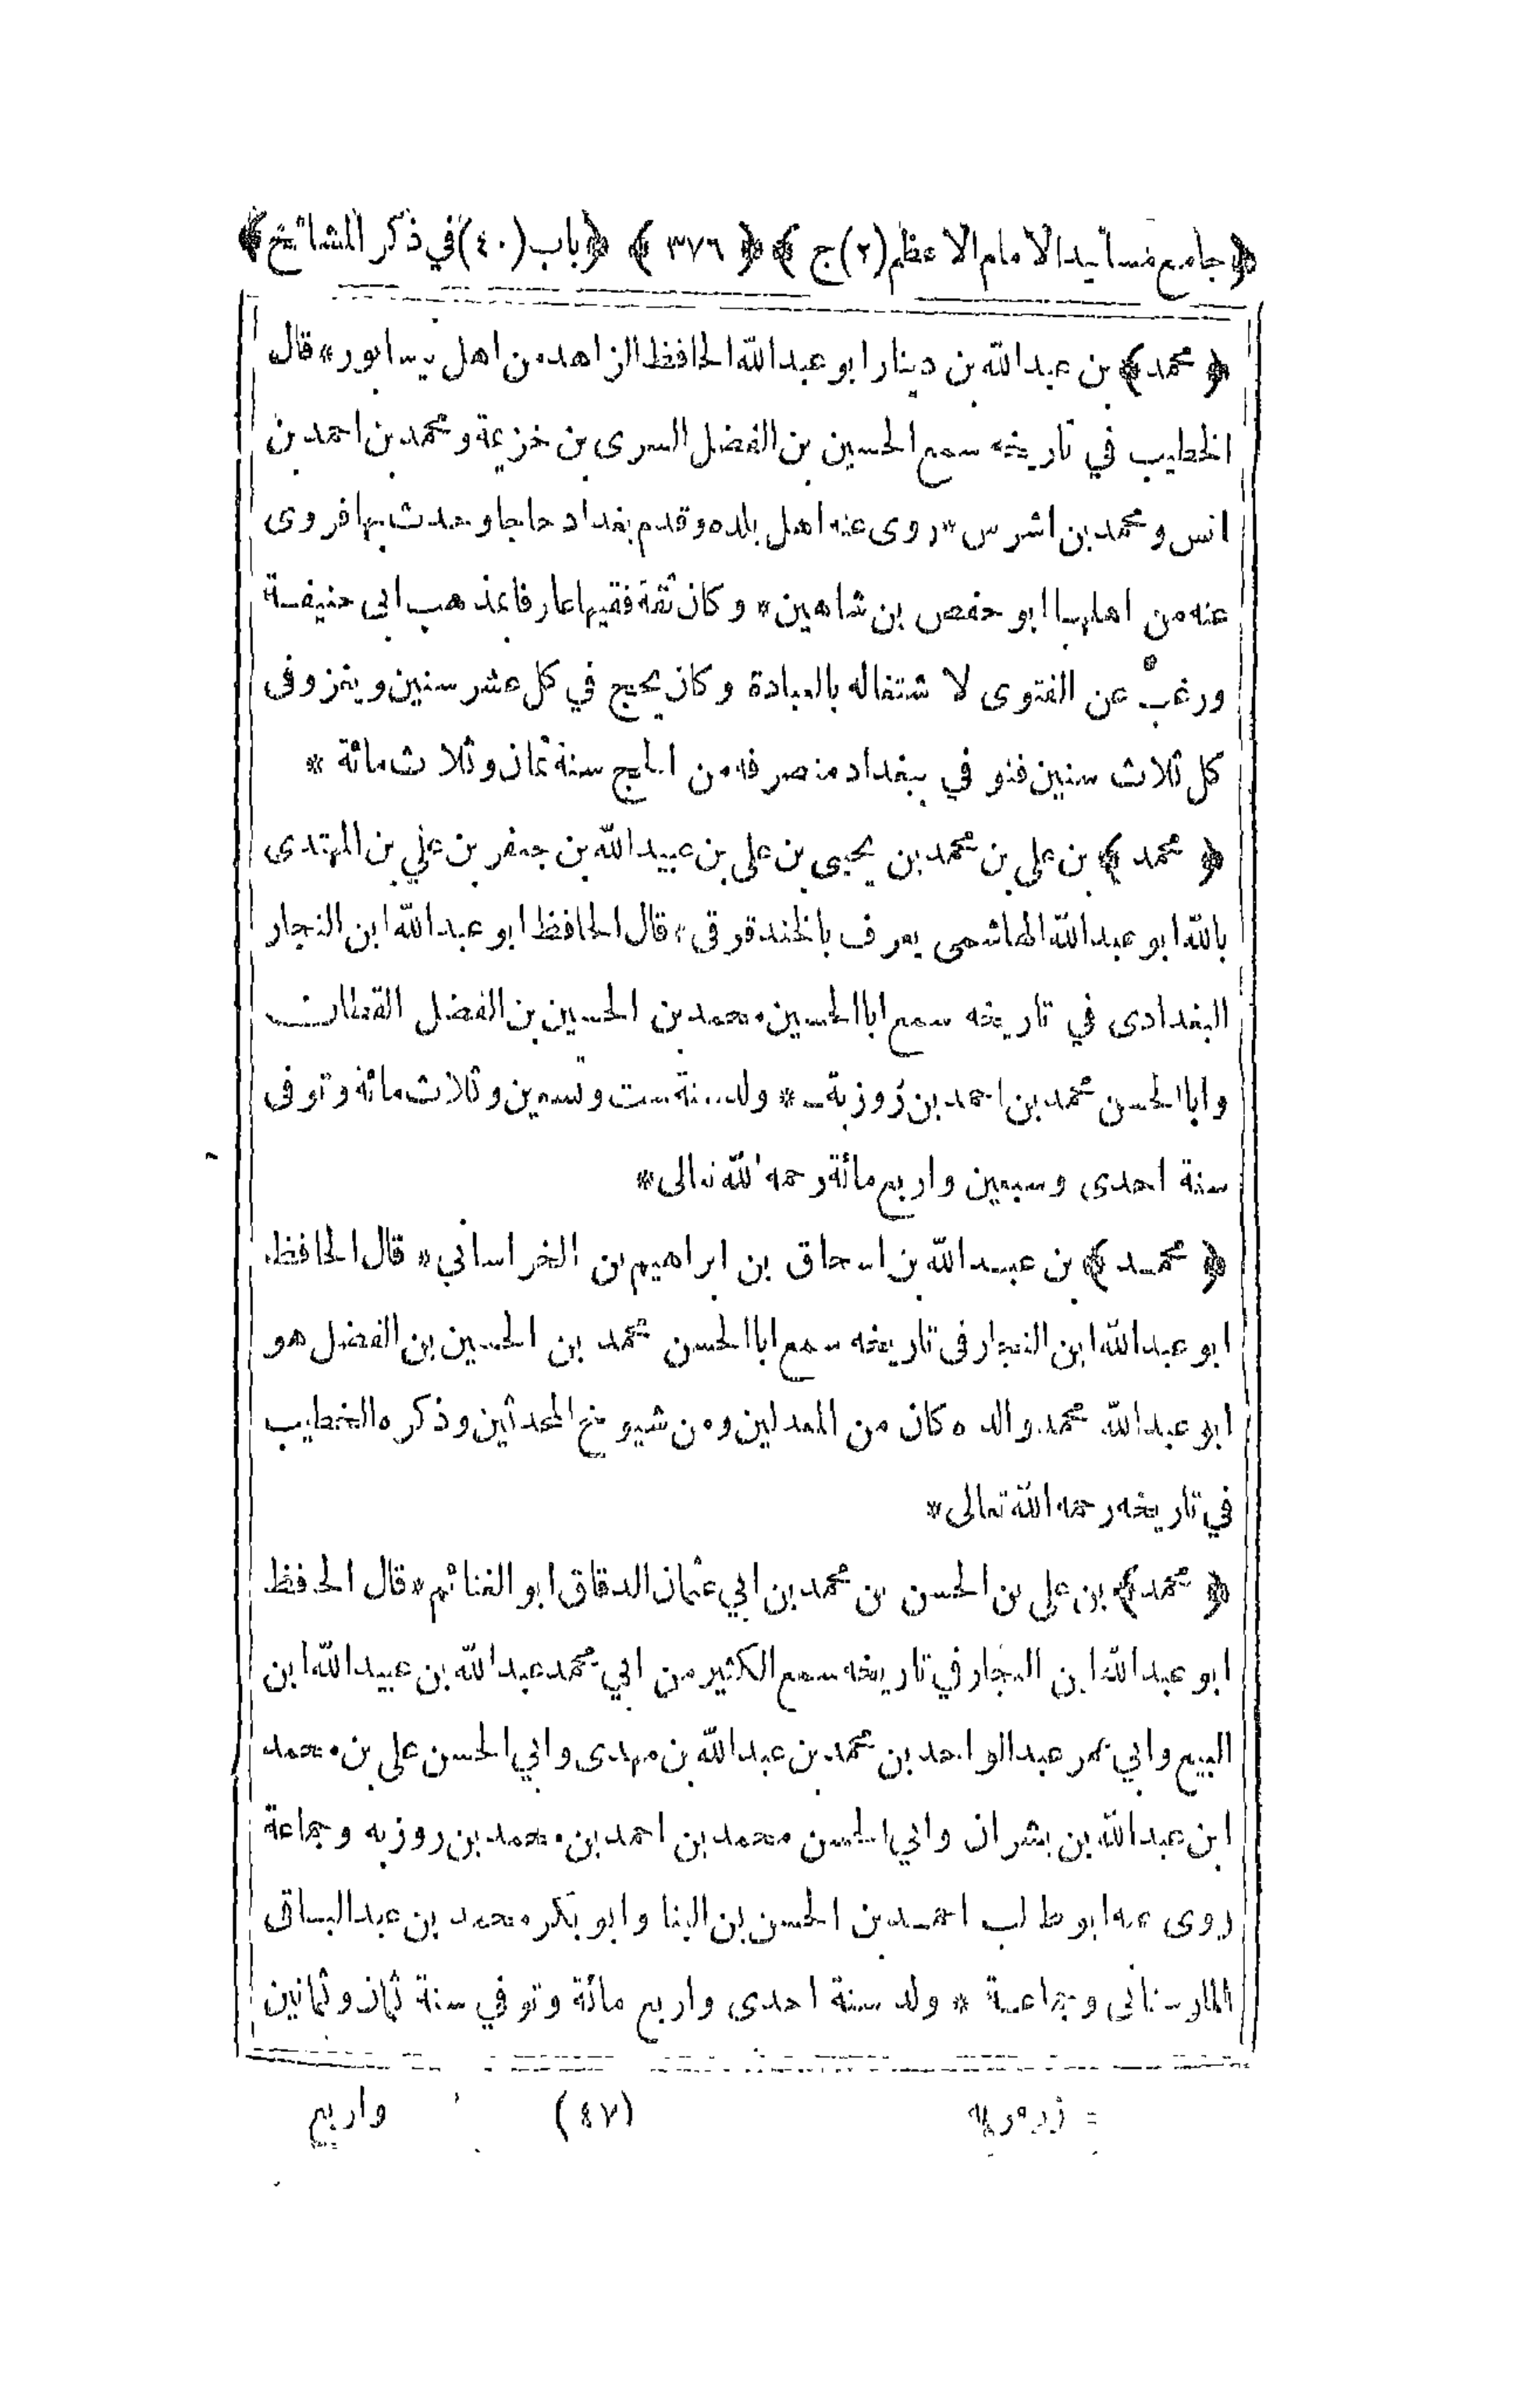 ﴿جامع مسانيد الامام الاعظم (٢) ج﴾ ﴿٣٧٦﴾ ﴿باب (٤٠) في ذكر المشائخ﴾
﴿محمد﴾ بن عبدالله بن دينار ابو عبدالله الحافظ الزاهد من اهل نيسابور * قال
الخطيب في تاريخه سمع الحسين بن الفضل السرى بن خزيمة و محمد بن احمد بن
انس و محمد بن اشرس * روى عنه اهل بلده وقدم بغداد حاجا وحدث بها فروى
عنه من اهلها ابو حفص بن شاهين * وكان ثقة فقيها عارفا بمذهب ابى حنيفة
ورغب عن الفتوى لا شتغاله بالعبادة وكان يحج في كل عشر سنين ويغزو فى
كل ثلاث سنين فتوفي ببغداد منصرفه من الحج سنة ثمان وثلاث مائة *
﴿محمد﴾ بن على بن محمد بن يحيى بن على بن عبيدالله بن جعفر بن علي بن المهتدى
بالله ابو عبدالله الهاشمى يعرف بالخندقوقى * قال الحافظ ابو عبدالله ابن النجار
البغدادى في تاريخه سمع ابا الحسين محمد بن الحسين بن الفضل القطان
وابا الحسن محمد بن احمد بن زوزبة * ولد سنة ست وتسعين وثلاث مائة وتوفى
سنة احدى وسبعين واربع مائة رحمه الله تعالى *
﴿محمد﴾ بن عبدالله بن اسحاق بن ابراهيم بن الخراساني * قال الحافظ
ابو عبدالله ابن النجار فى تاريخه سمع ابا الحسن محمد بن الحسين بن الفضل هو
ابو عبدالله محمد والده كان من المعدلين ومن شيوخ المحدثين وذكره الخطيب
في تاريخه رحمه الله تعالى *
﴿محمد﴾ بن على بن الحسن بن محمد بن ابي عثمان الدقاق ابو الغنائم * قال الحافظ
ابو عبدالله ابن النجار في تاريخه سمع الكثير من ابي محمد عبدالله بن عبيدالله ابن
البيع وابي عمر عبدالواحد بن محمد بن عبدالله بن مهدى وابي الحسن على بن محمد
ابن عبدالله بن بشران وابي الحسن محمد بن احمد بن محمد بن روزبه وجماعة
روى عنه ابو طالب احمد بن الحسن بن البنا وابو بكر محمد بن عبد الباقى
المارستانى وجماعة * ولد سنة احدى واربع مائة وتوفي سنة ثمان وثمانين
(٤٧) واربع